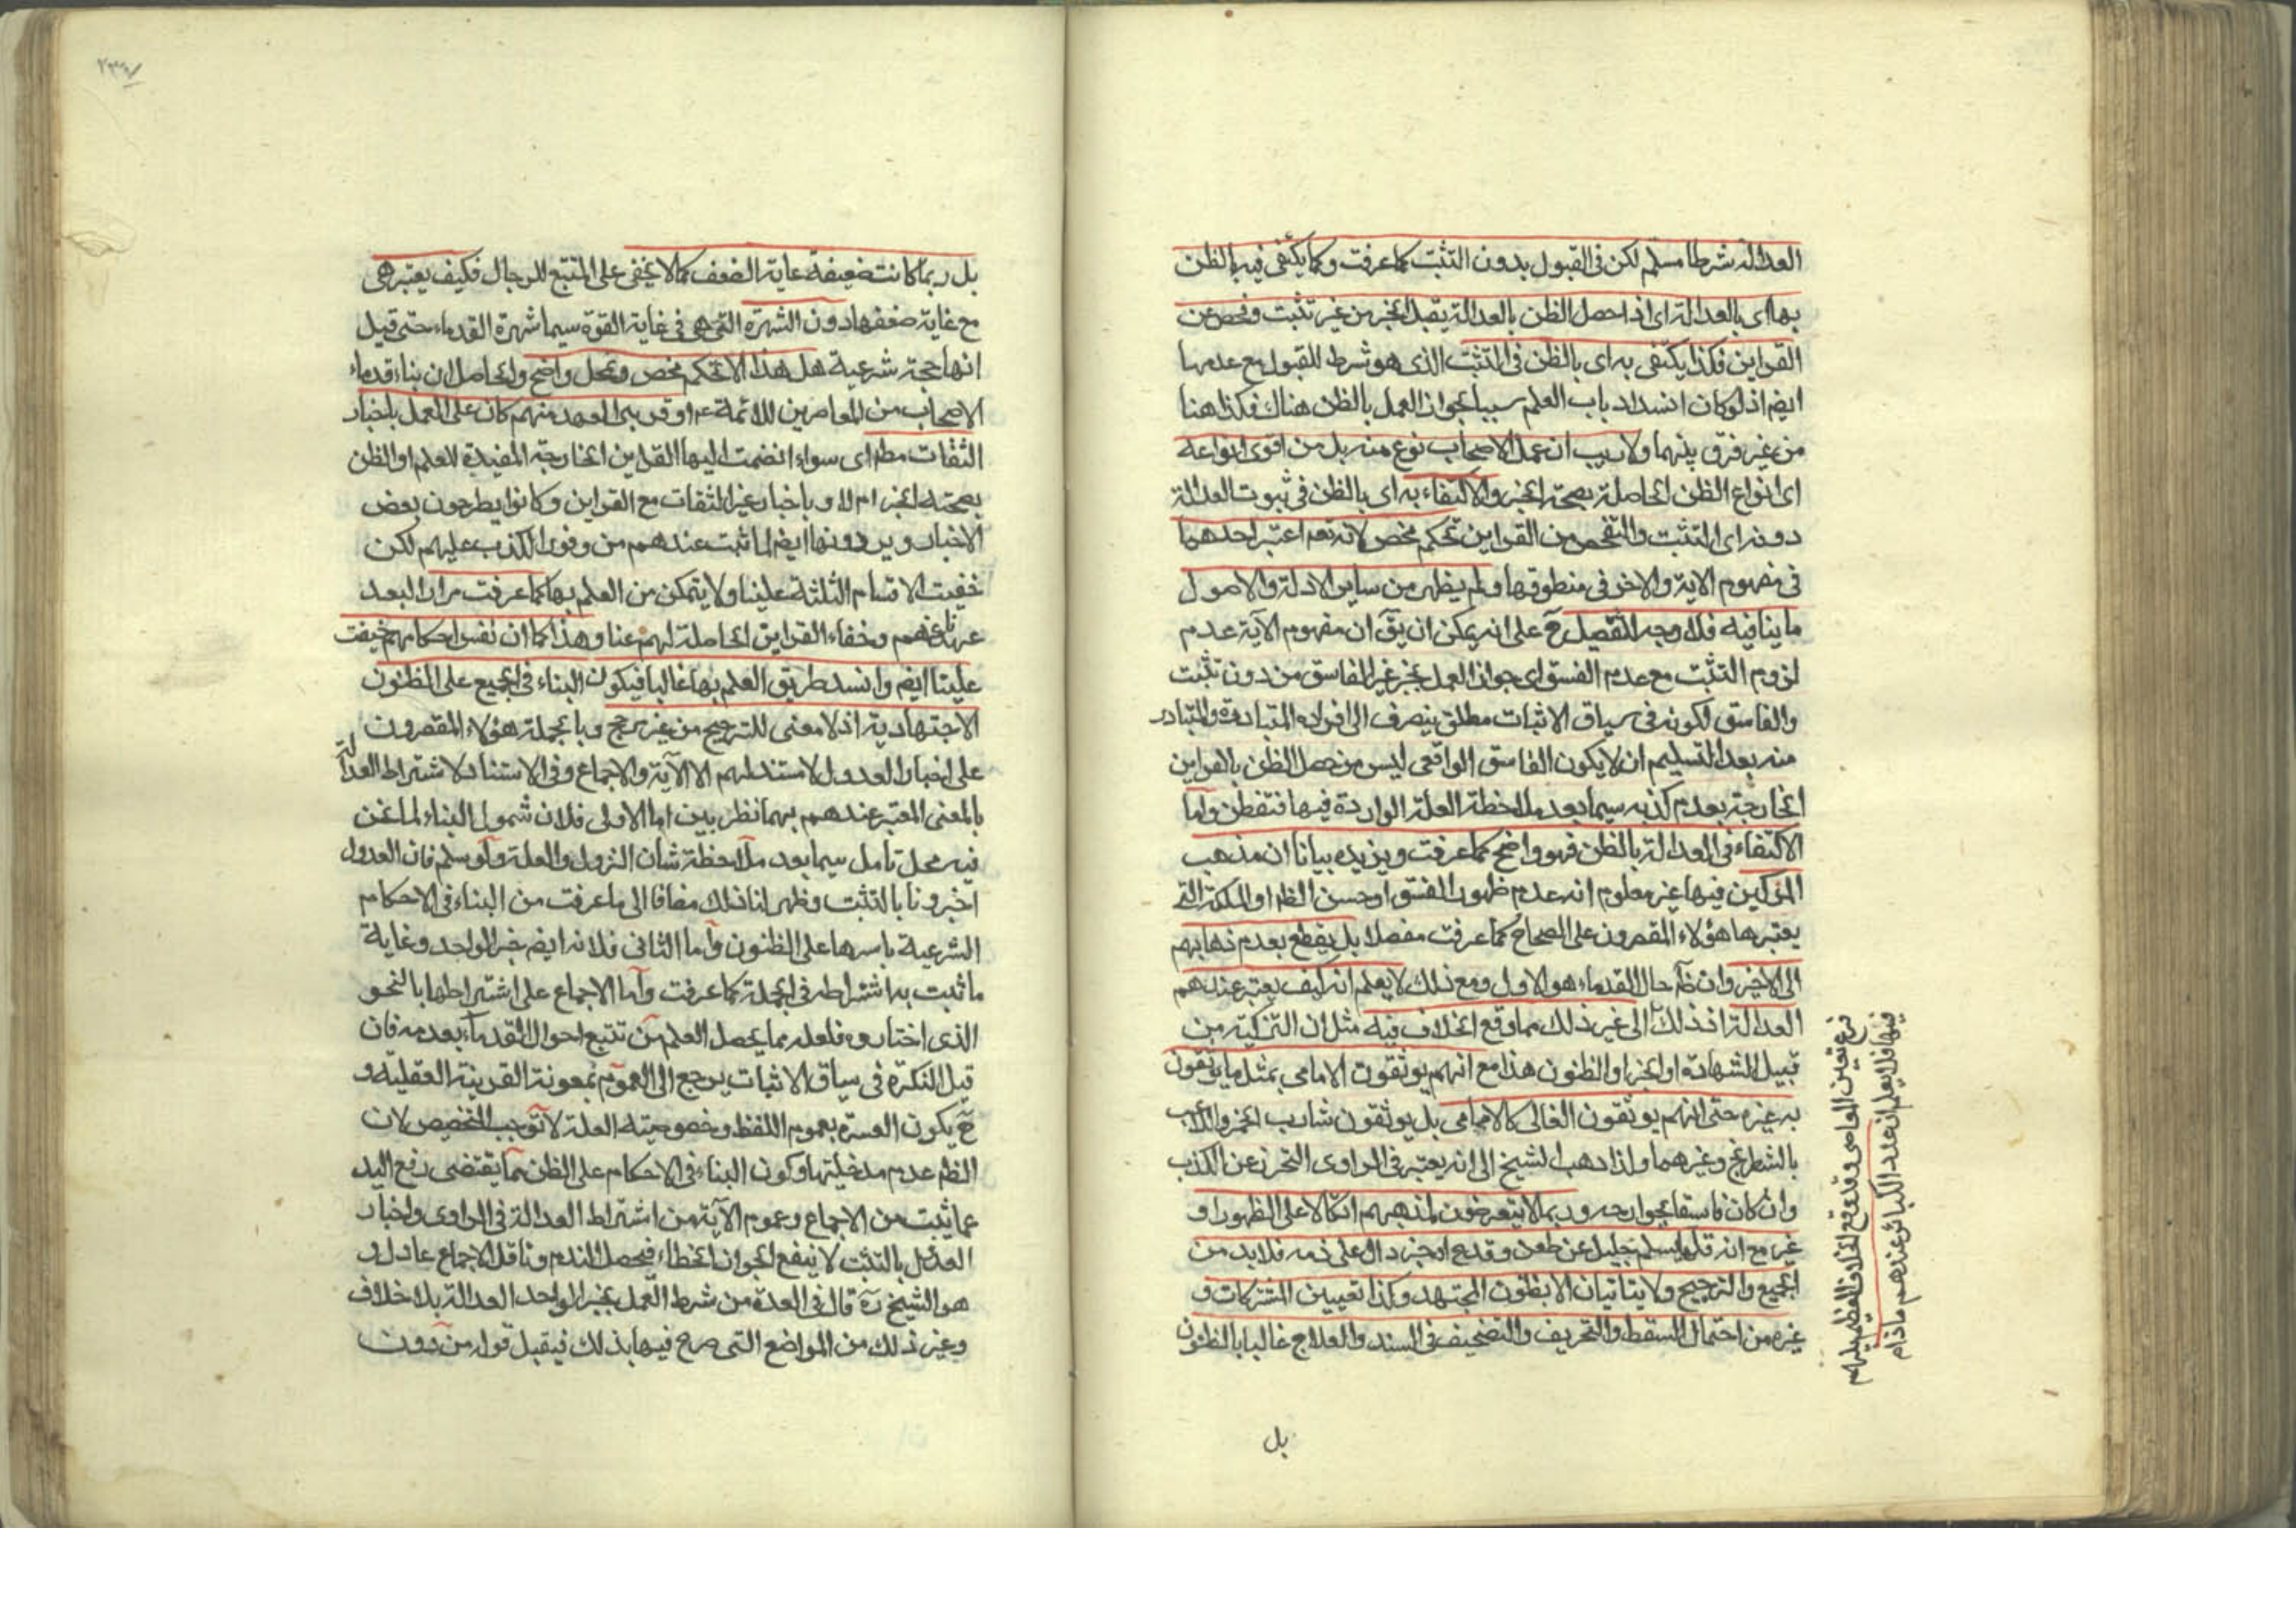 العدالة شرطا مسلّم لكن فى القبول بدون التثبت كما عرفت وكما يكتفى فيه بالظن
بها اى بالعدالة اى اذا حصل الظن بالعدالة يقبل الخبر من غير تثبت وفحص عن
القراين فكذا يكتفى به اى بالظن فى التثبت الذى هو شرط للقبول مع عدمها
ايضم اذ لو كان انسداد باب العلم سببا لجواز العمل بالظن هناك فكذا هنا
من غير فرق بينهما ولا ريب ان عمل الاصحاب نوع منه بل من اقوى انواعه
اى انواع الظن الحاصلة بصحة الخبر والاكتفاء به اى بالظن فى ثبوت العدالة
دونه اى التثبت والتفحص من القراين تحكم محض لانه تعم اعتبر احدهما
فى مفهوم الاية والاخر فى منطوقها ولم يظهر من ساير الادلة والاصول
ما ينافيه فلا وجه للتفصيل ح على انه يمكن ان يق ان مفهوم الآية عدم
لزوم التثبت مع عدم الفسق اى جواز العمل بخبر غير الفاسق من دون تثبت
والفاسق لكونه فى سياق الاثبات مطلق ينصرف الى افراده المتبادرة والمتبادر
منه بعد التسليم ان لا يكون الفاسق الواقعى ليس من حصل الظن بالقراين
الخارجة بعدم كذبه سيما بعد ملاحظة العلة الواردة فيها فتفطن واما
الاكتفاء فى العدالة بالظن فهو واضح كما عرفت ويزيده بيانا ان مذهب
المزكين فيها غير معلوم انه عدم ظهور الفسق او حسن الظم او الملكة التى
يعتبرها هؤلاء المقصرون على الصحاح كما عرفت مفصلا بل يقطع بعدم ذهابهم
الى الاخير وان ظم حال القدماء هو الاول ومع ذلك لا يعلم انه كيف يعتبر عندهم
العدالة اذ ذلك الى غير ذلك مما وقع الخلاف فيه مثل ان التزكية من
قبيل الشهادة او الخبر او الظنون هذا مع انهم يوثقون الامامى بمثل ما يوثقون
به غيره حتى انهم يوثقون الغالى كالامامى بل يوثقون شارب الخمر واللاعب
بالشطرنج وغيرهما ولذا ذهب الشيخ الى انه يعتبر فى الراوى التحرز عن الكذب
وان كان فاسقا بجوارحه وربما لا يتعرضون لمذهبهم اتكالا على الظهور او
غيره مع انه قلما يسلم جليل عن طعن وقدح او خبر دال على ذمه فلا بد من
الجمع والترجيح ولا يتاتيان الا بظنون المجتهد وكذا تعيين المشتركات و
غيره من احتمال السقط والتحريف والتصحيف فى السند والعلاج غالبا بالظنون
فرع تعيين المعاصى وقد وقع الخلاف العظيم بينهم
فيها فلا يعلم ان عدد الكبائر عندهم ماذام
بل
بل ربما كانت ضعيفة غاية الضعف كما لا يخفى على المتتبع للرجال فكيف يعتبر هى
مع غاية ضعفها دون الشهرة التى هى فى غاية القوة سيما شهرة القدماء حتى قيل
انها حجة شرعية هل هذا الا تحكم محض وتمحل واضح والحاصل ان بناء قدماء
الاصحاب من المعاصرين للائمة عم او قريبى العهد منهم كان على العمل باخبار
الثقات مطم اى سواء انضمت اليها القراين الخارجة المفيدة للعلم او الظن
بصحته الخبر ام لا وباخبار غير الثقات مع القراين وكانوا يطرحون بعض
الاخبار ويردونها ايضم لما ثبت عندهم من وفور الكذب عليهم لكن
خفيت الاقسام الثلثة علينا ولا يتمكن من العلم بها كما عرفت مرارا لبعد
عهدنا عنهم وخفاء القراين الحاصلة لهم عنا وهذا كما ان نفس احكامهم خفيت
علينا ايضم وانسد طريق العلم بها غالبا فيكون البناء فى الجميع على الظنون
الاجتهادية اذ لا معنى للترجيح من غير مرجح وبالجملة هؤلاء المقصرون
على اخبار العدول لا مستند لهم الا الآية والاجماع وفى الاستناد لاشتراط العدالة
بالمعنى المعتبر عندهم بهما نظر بين اما الاولى فلان شمول البناء لما نحن
فيه محل تامل سيما بعد ملاحظة شان النزول والعلة ولو سلم فان العدول
اخبرونا بالتثبت وظهر لنا ذلك مضافا الى ما عرفت من البناء فى الاحكام
الشرعية باسرها على الظنون واما الثانى فلانه ايضم خبر الواحد وغاية
ما ثبت به اشتراطه فى الجملة كما عرفت واما الاجماع على اشتراطها بالنحو
الذى اختاروه فلعله مما يحصل العلم من تتبع احوال القدماء بعدمه فان
قيل النكرة فى سياق الاثبات يرجع الى العموم بمعونة القرينة العقلية و
ح يكون العبرة بعموم اللفظ وخصوصية العلة لا توجب التخصيص لان
الظم عدم مدخليتها وكون البناء فى الاحكام على الظن مما يقتضى رفع اليد
عما ثبت من الاجماع وعموم الآية من اشتراط العدالة فى الراوى واخبار
العدل بالتثبت لا ينفع لجواز الخطاء فيحصل الندم وناقل الاجماع عادل و
هو الشيخ ره قال فى العدة من شرط العمل بخبر الواحد العدالة بلا خلاف
وغير ذلك من المواضع التى صرح فيها بذلك فيقبل قوله من دون